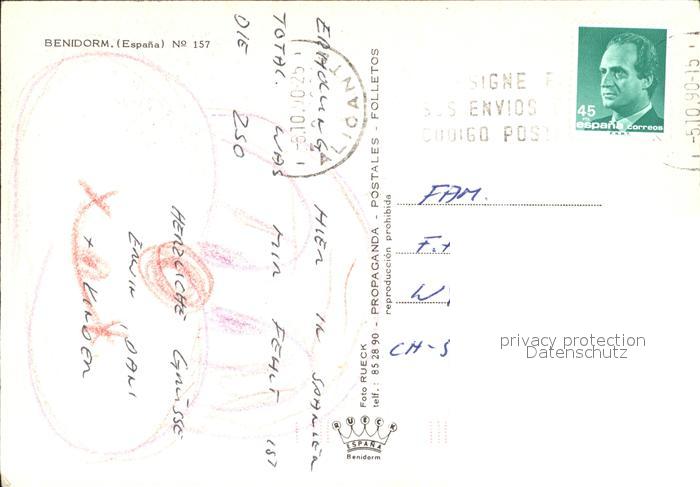 BENIDORM. (España) Nº 157
ERHOLUNG HIER IN SPANIEN
TOTAL. WAS MIR FEHLT IST
DIE 250
HERZLICHE GRÜSSE
ERWIN, DANI
+ KINDER
ALICANTE
-5.10.90-15
Foto RUECK - PROPAGANDA - POSTALES - FOLLETOS
telf.: 85 28 90
reproducción prohibida
RUECK
ESPAÑA
Benidorm
SIGNE
SUS ENVIOS
CODIGO POS
-5.10.90-15
45
españa correos
FAM.
CH-
privacy protection
Datenschutz